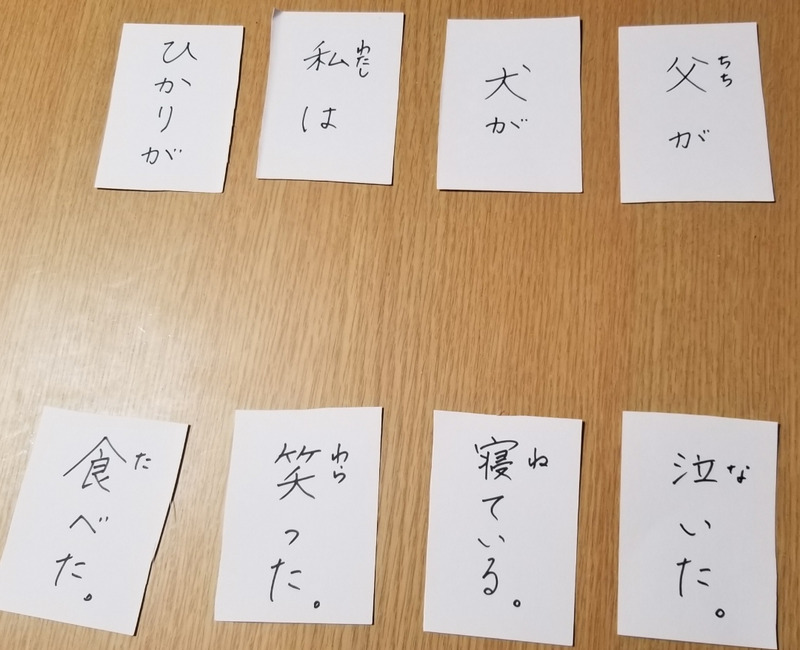 父が
ちち
犬が
私は
わたし
ひかりが
泣いた。
な
寝ている。
ね
笑った。
わら
食べた。
た